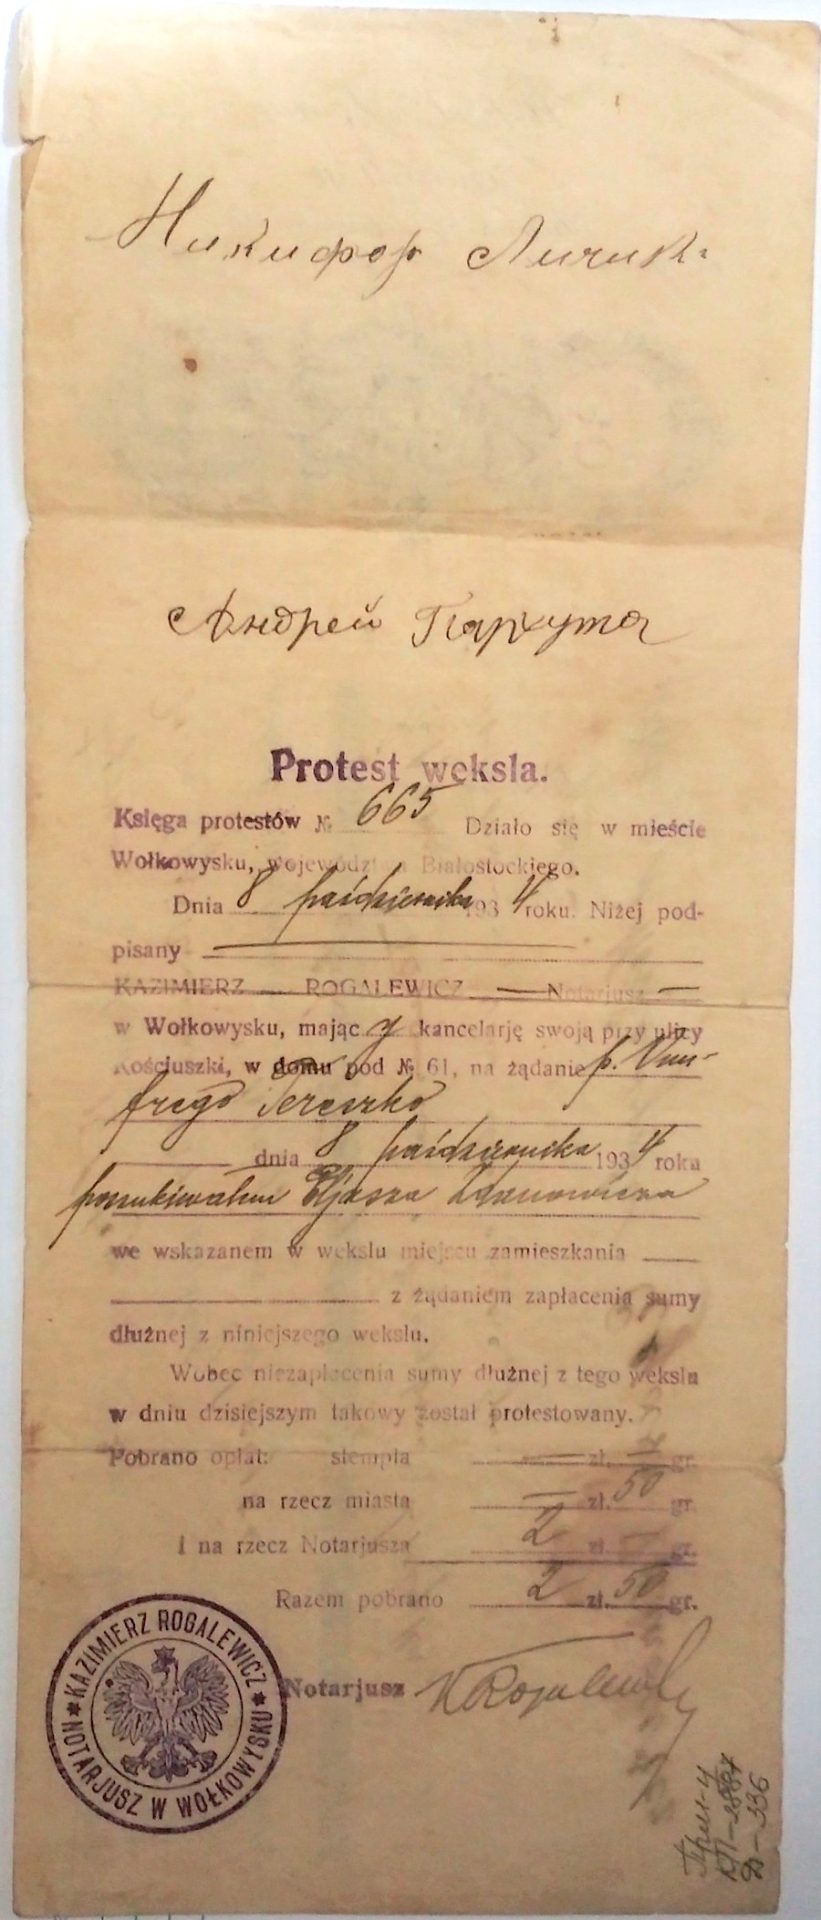 Никифор Личик
Андрей Пархута
Protest weksla.
Księga protestów № 665 Działo się w mieście
Wołkowysku, województwa Białostockiego.
Dnia 8 października 1934 roku. Niżej pod-
pisany
KAZIMIERZ — ROGALEWICZ — Notarjusz —
w Wołkowysku, mając y kancelarję swoją przy ulicy
Kościuszki, w domu pod № 61, na żądanie p. Onu-
frego Tereszko
dnia 8 października 1934 roku
poszukiwałem Eljasza
we wskazanem w wekslu miejscu zamieszkania
z żądaniem zapłacenia sumy
dłużnej z niniejszego wekslu.
Wobec niezapłacenia sumy dłużnej z tego wekslu
w dniu dzisiejszym takowy został protestowany.
Pobrano opłat: stempla — zł. — gr.
na rzecz miasta — zł. 50 gr.
i na rzecz Notarjusza 2 zł. — gr.
Razem pobrano 2 zł. 50 gr.
Notarjusz KRogalewicz
KAZIMIERZ ROGALEWICZ * NOTARJUSZ W WOŁKOWYSKU *
Д-336